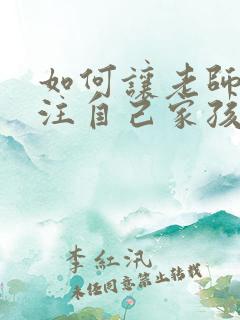 如何讓老師
注自己家孩
李紅汛
未经同意禁止转载